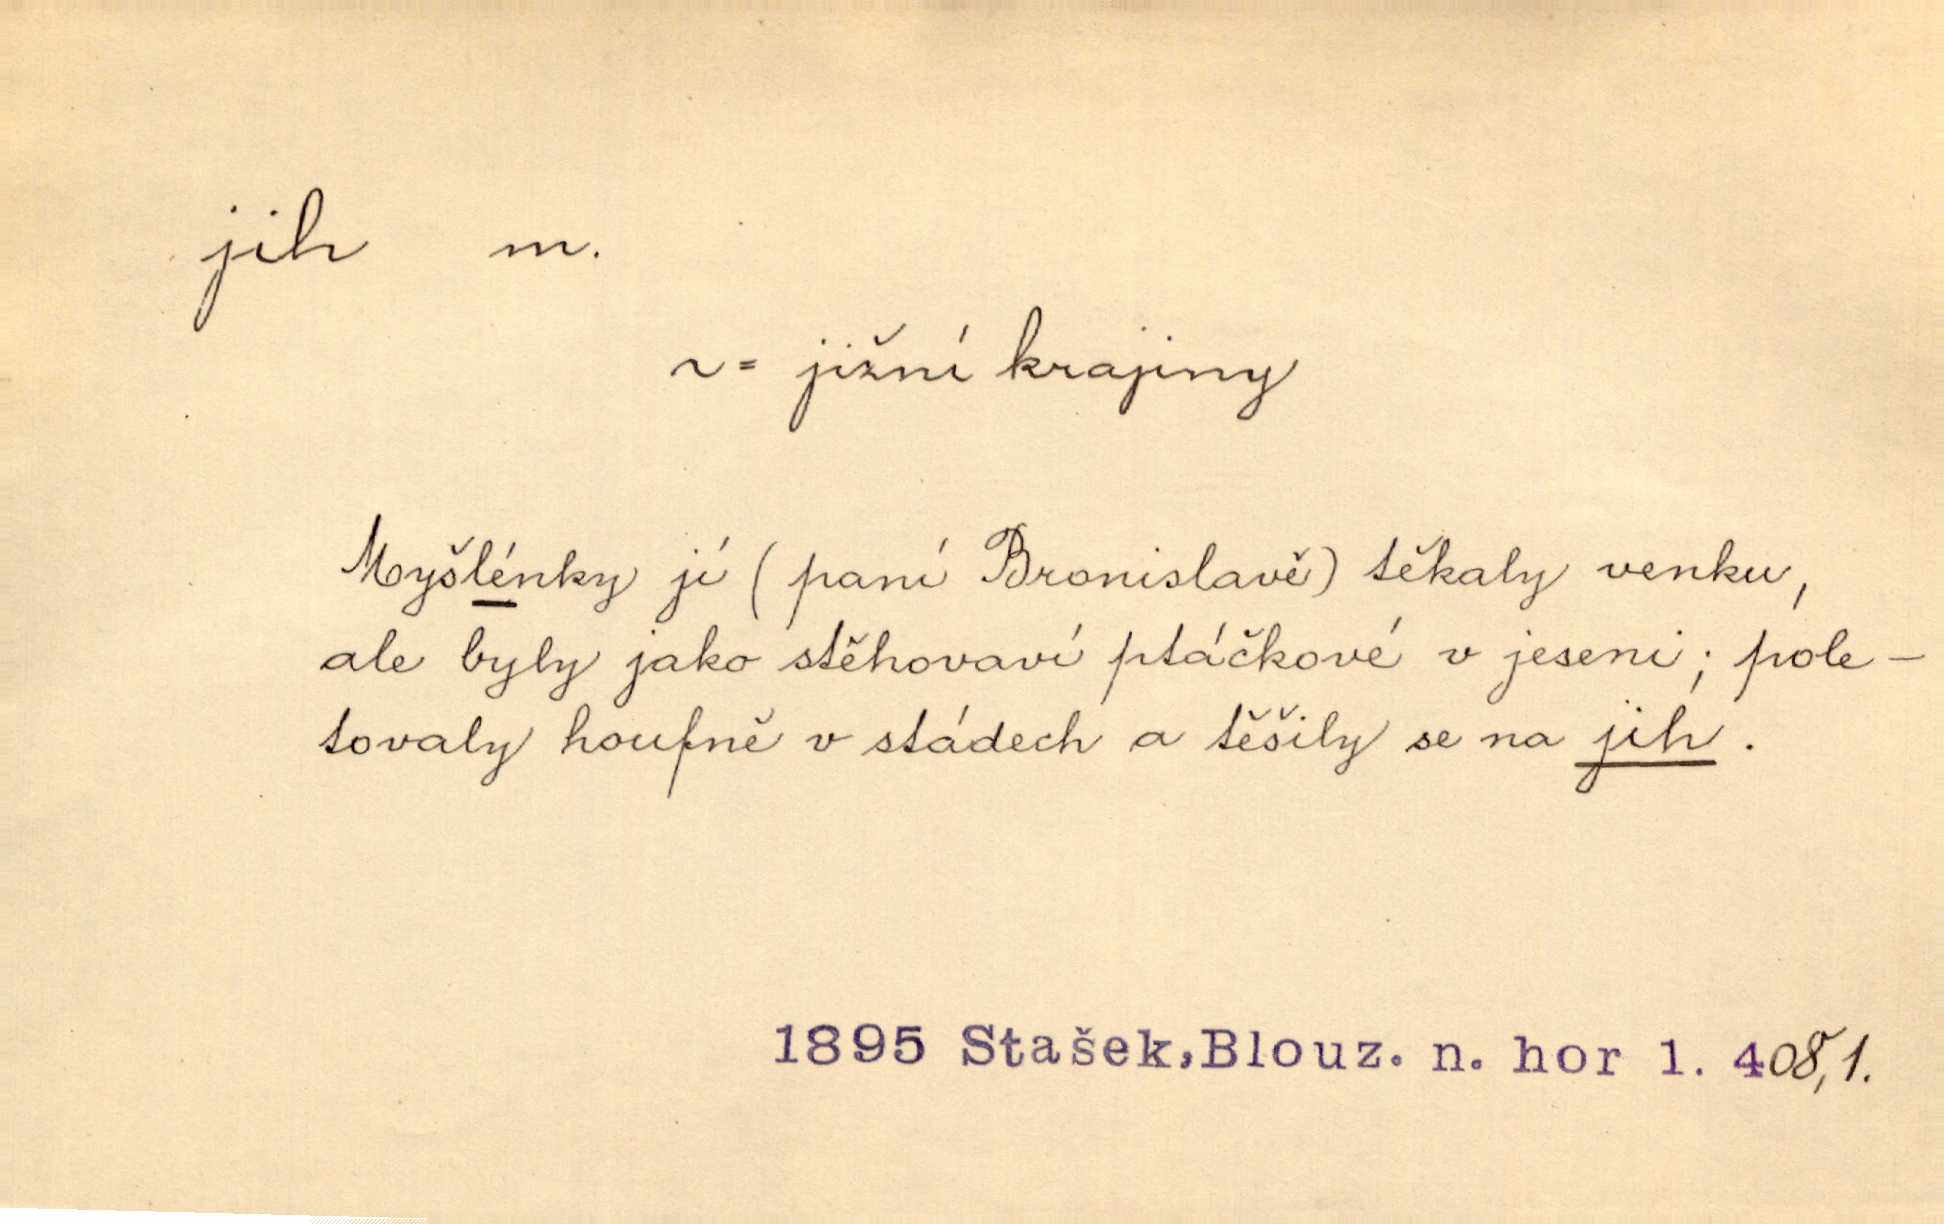 jih m.
~= jižní krajiny
Myšlénky jí (paní Bronislavě) těkaly venku,
ale byly jako stěhovaví ptáčkové v jeseni; pole-
tovaly houfně v stádech a těšily se na jih.
1895 Stašek,Blouz. n. hor 1. 408,1.